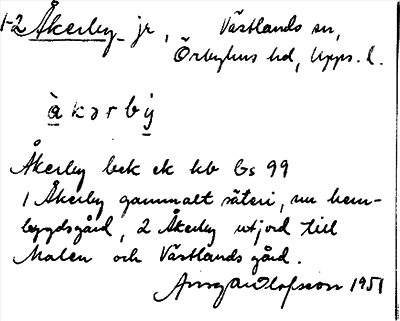 1-2 Åkerby jr, Västlands sn,
Örbyhus hd, Upps. l.
àkərbỳ
Åkerby bek ek kb Gs 99
1 Åkerby gammalt säteri, nu hem-
bygdsgård, 2 Åkerby utjord till
Malen och Västlands gård.
Olofsson 1951